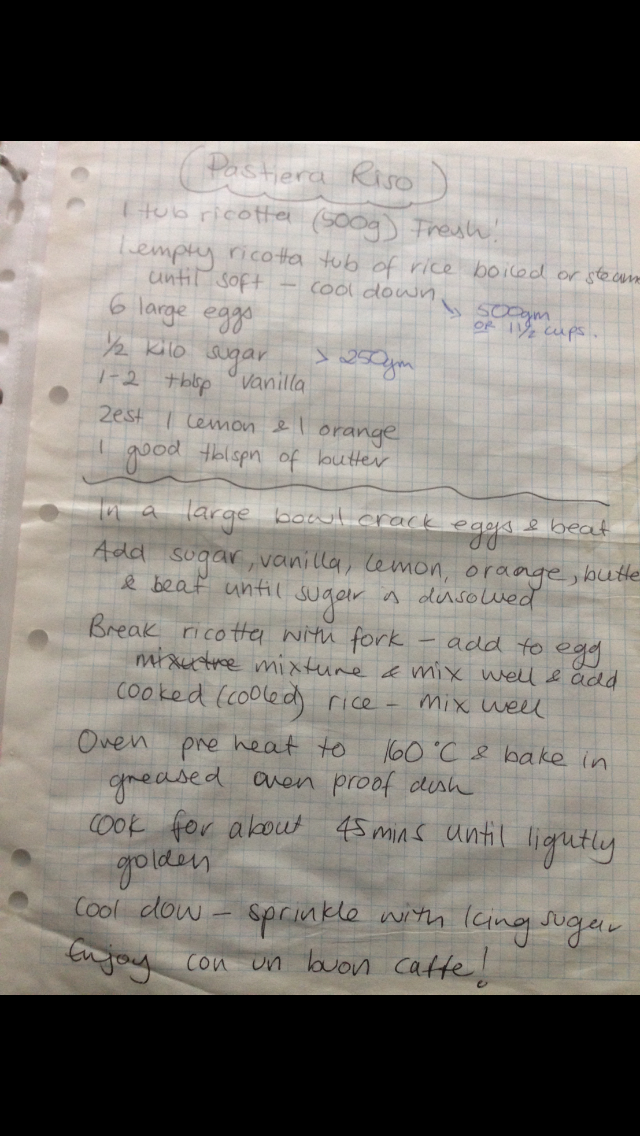 Pastiera Riso
1 tub ricotta (500g) Fresh!
1 empty ricotta tub of rice boiled or steam
until soft - cool down
↘ 500gm
or 1 1/2 cups.
6 large eggs
1/2 kilo sugar > 250gm
1-2 tblsp vanilla
Zest 1 lemon & 1 orange
1 good tblspn of butter
In a large bowl crack eggs & beat
Add sugar, vanilla, lemon, orange, butte
& beat until sugar is dissolved
Break ricotta with fork - add to egg
mixutre mixture & mix well & add
cooked (cooled) rice - mix well
Oven pre heat to 160°C & bake in
greased oven proof dish
Cook for about 45 mins until lightly
golden
Cool dow - sprinkle with Icing sugar
Enjoy con un buon caffe!